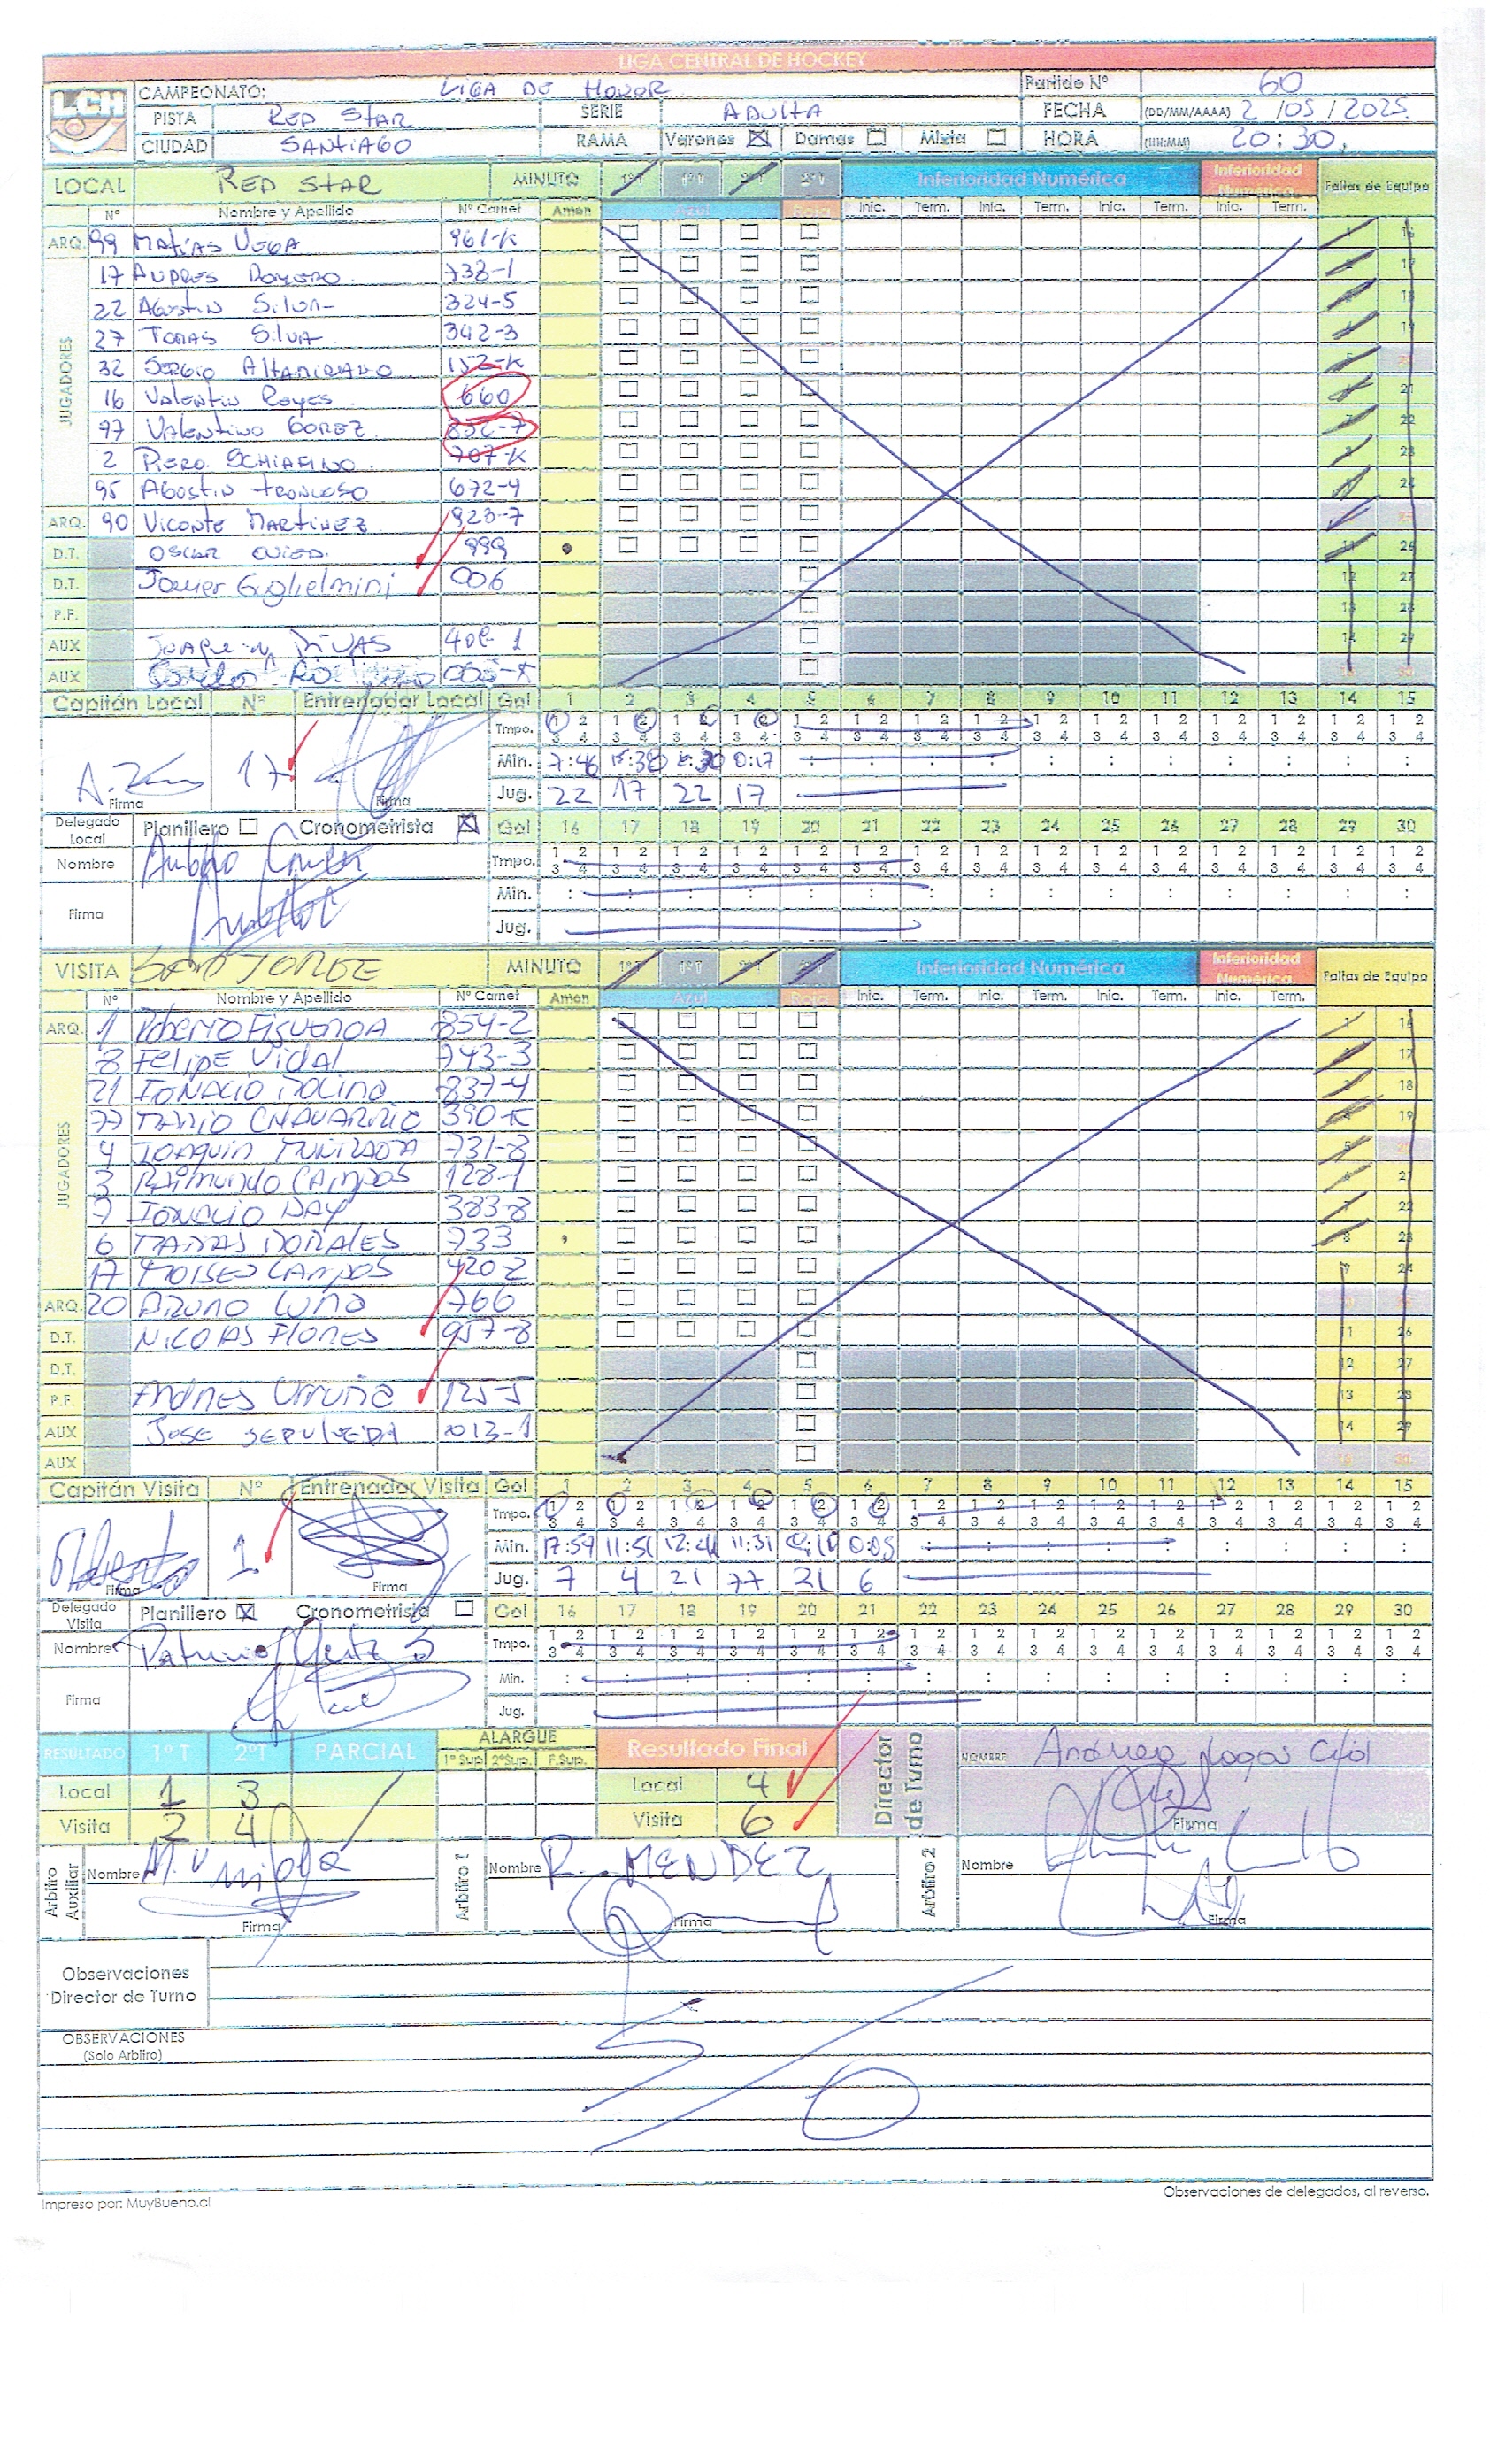 LIGA CENTRAL DE HOCKEY
LCH
CAMPEONATO: LIGA DE HONOR Partido Nº 60
PISTA RED STAR SERIE ADULTA FECHA (DD/MM/AAAA) 2 / 05 / 2025
CIUDAD SANTIAGO RAMA Varones Damas Mixta HORA (HH:MM) 20:30
LOCAL RED STAR MINUTO 1ºT 1ºT 2ºT 2ºT Inferioridad Numérica Inferioridad Numérica Faltas de Equipo
Nº Nombre y Apellido Nº Carnet Amon Azul Roja Inic. Term. Inic. Term. Inic. Term. Inic. Term.
ARQ. 99 MATÍAS VEGA 961-K 1 16
JUGADORES
17 ANDRES ROMERO 738-1 2 17
22 AGUSTIN SILVA 324-5 3 18
27 TOMAS SILVA 342-3 4 19
32 SERGIO ALTAMIRANO 152-K 5 20
16 VALENTIN REYES 660 6 21
97 VALENTINO GOMEZ 7 22
2 PIERO SCHIAFINO 707-K 8 23
95 AGOSTIN TRONCOSO 672-4 9 24
ARQ. 90 VICENTE MARTINEZ 923-7 10 25
D.T. OSCAR 999 11 26
D.T. Javier Guglielmini 006 12 27
P.F. 13 28
AUX JOAQUIN RIVAS 14 29
AUX 15 30
Capitán Local Nº Entrenador Local Gol 1 2 3 4 5 6 7 8 9 10 11 12 13 14 15
Tmpo. 1 2 3 4
17 Min. 7:46 0:17
Firma Firma Jug. 22 17 22 17
Delegado Local Planillero Cronometrista Gol 16 17 18 19 20 21 22 23 24 25 26 27 28 29 30
Nombre Tmpo. 1 2 3 4
Min.
Firma Jug.
VISITA SAN JORGE MINUTO 1ºT 1ºT 2ºT 2ºT Inferioridad Numérica Inferioridad Numérica Faltas de Equipo
Nº Nombre y Apellido Nº Carnet Amon Azul Roja Inic. Term. Inic. Term. Inic. Term. Inic. Term.
ARQ. 1 ROBERTO FIGUEROA 854-2 1 16
JUGADORES
8 FELIPE VIDAL 743-3 2 17
21 IGNACIO MOLINA 837-4 3 18
77 MARIO CHAVARRIA 390-K 4 19
4 JOAQUIN 731-8 5 20
3 RAIMUNDO CAMPOS 128-1 6 21
7 IGNACIO DAY 383-8 7 22
6 MATIAS MORALES 733 8 23
17 MOISES CAMPOS 420-2 9 24
ARQ. 20 BRUNO LUNA 766 10 25
D.T. NICOLAS FLORES 957-8 11 26
D.T. 12 27
P.F. ANDRES URRUTIA 125-5 13 28
AUX JOSE SEPULVEDA 013-1 14 29
AUX 15 30
Capitán Visita Nº Entrenador Visita Gol 1 2 3 4 5 6 7 8 9 10 11 12 13 14 15
Tmpo. 1 2 3 4
1 Min. 17:59 11:51 11:31 0:05
Firma Firma Jug. 7 4 21 77 21 6
Delegado Visita Planillero Cronometrista Gol 16 17 18 19 20 21 22 23 24 25 26 27 28 29 30
Nombre Tmpo. 1 2 3 4
Min.
Firma Jug.
RESULTADO 1º T 2º T PARCIAL ALARGUE 1ª Sup 2ªSup. F.Sup. Resultado Final Director de Turno NOMBRE Andrea Rojas Cid
Local 1 3 Local 4
Visita 2 4 Visita 6 Firma
Arbitro Auxiliar Nombre Arbitro 1 Nombre R. MENDEZ Arbitro 2 Nombre
Firma Firma Firma
Observaciones
Director de Turno
OBSERVACIONES
(Solo Arbitro)
S/O
Impreso por: MuyBueno.cl Observaciones de delegados, al reverso.